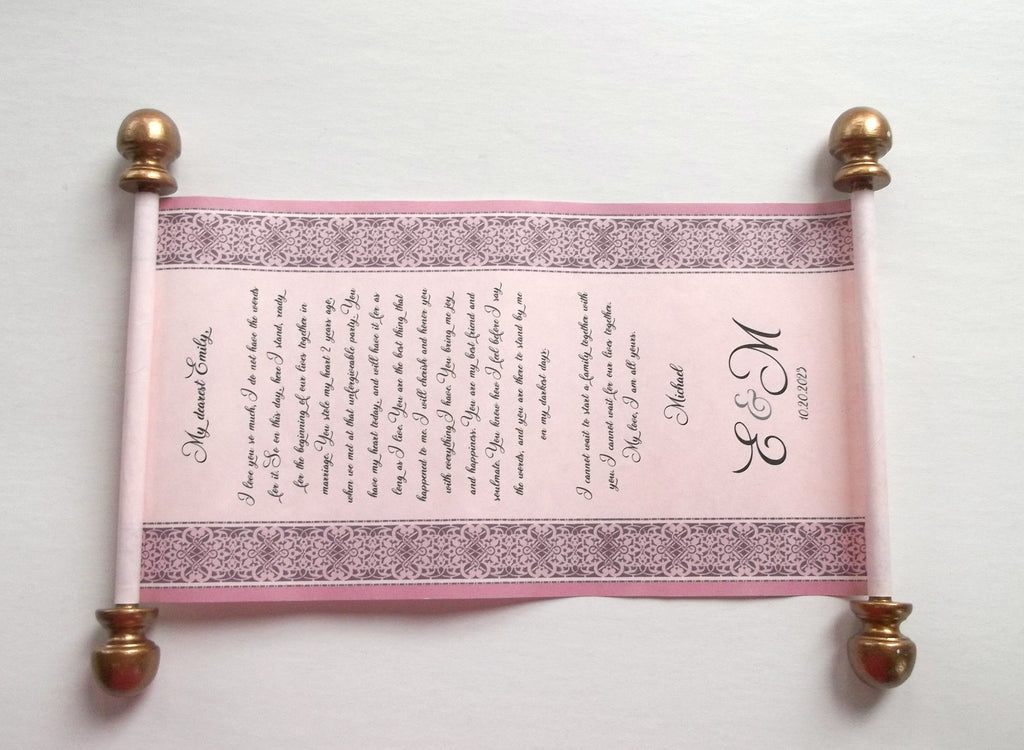 My dearest Emily,
I love you so much, I do not have the words
for it. So on this day, here I stand, ready
for the beginning of our lives together in
marriage. You stole my heart 2 years ago,
when we met at that unforgiveable party. You
have my heart today, and will have it for as
long as I live. You are the best thing that
happened to me. I will cherish and honor you
with everything I have. You bring me joy
and happiness. You are my best friend and
soulmate. You know how I feel before I say
the words, and you are there to stand by me
on my darkest days.
I cannot wait to start a family together with
you. I cannot wait for our lives together.
My love, I am all yours.
Michael
E & M
10.20.2025